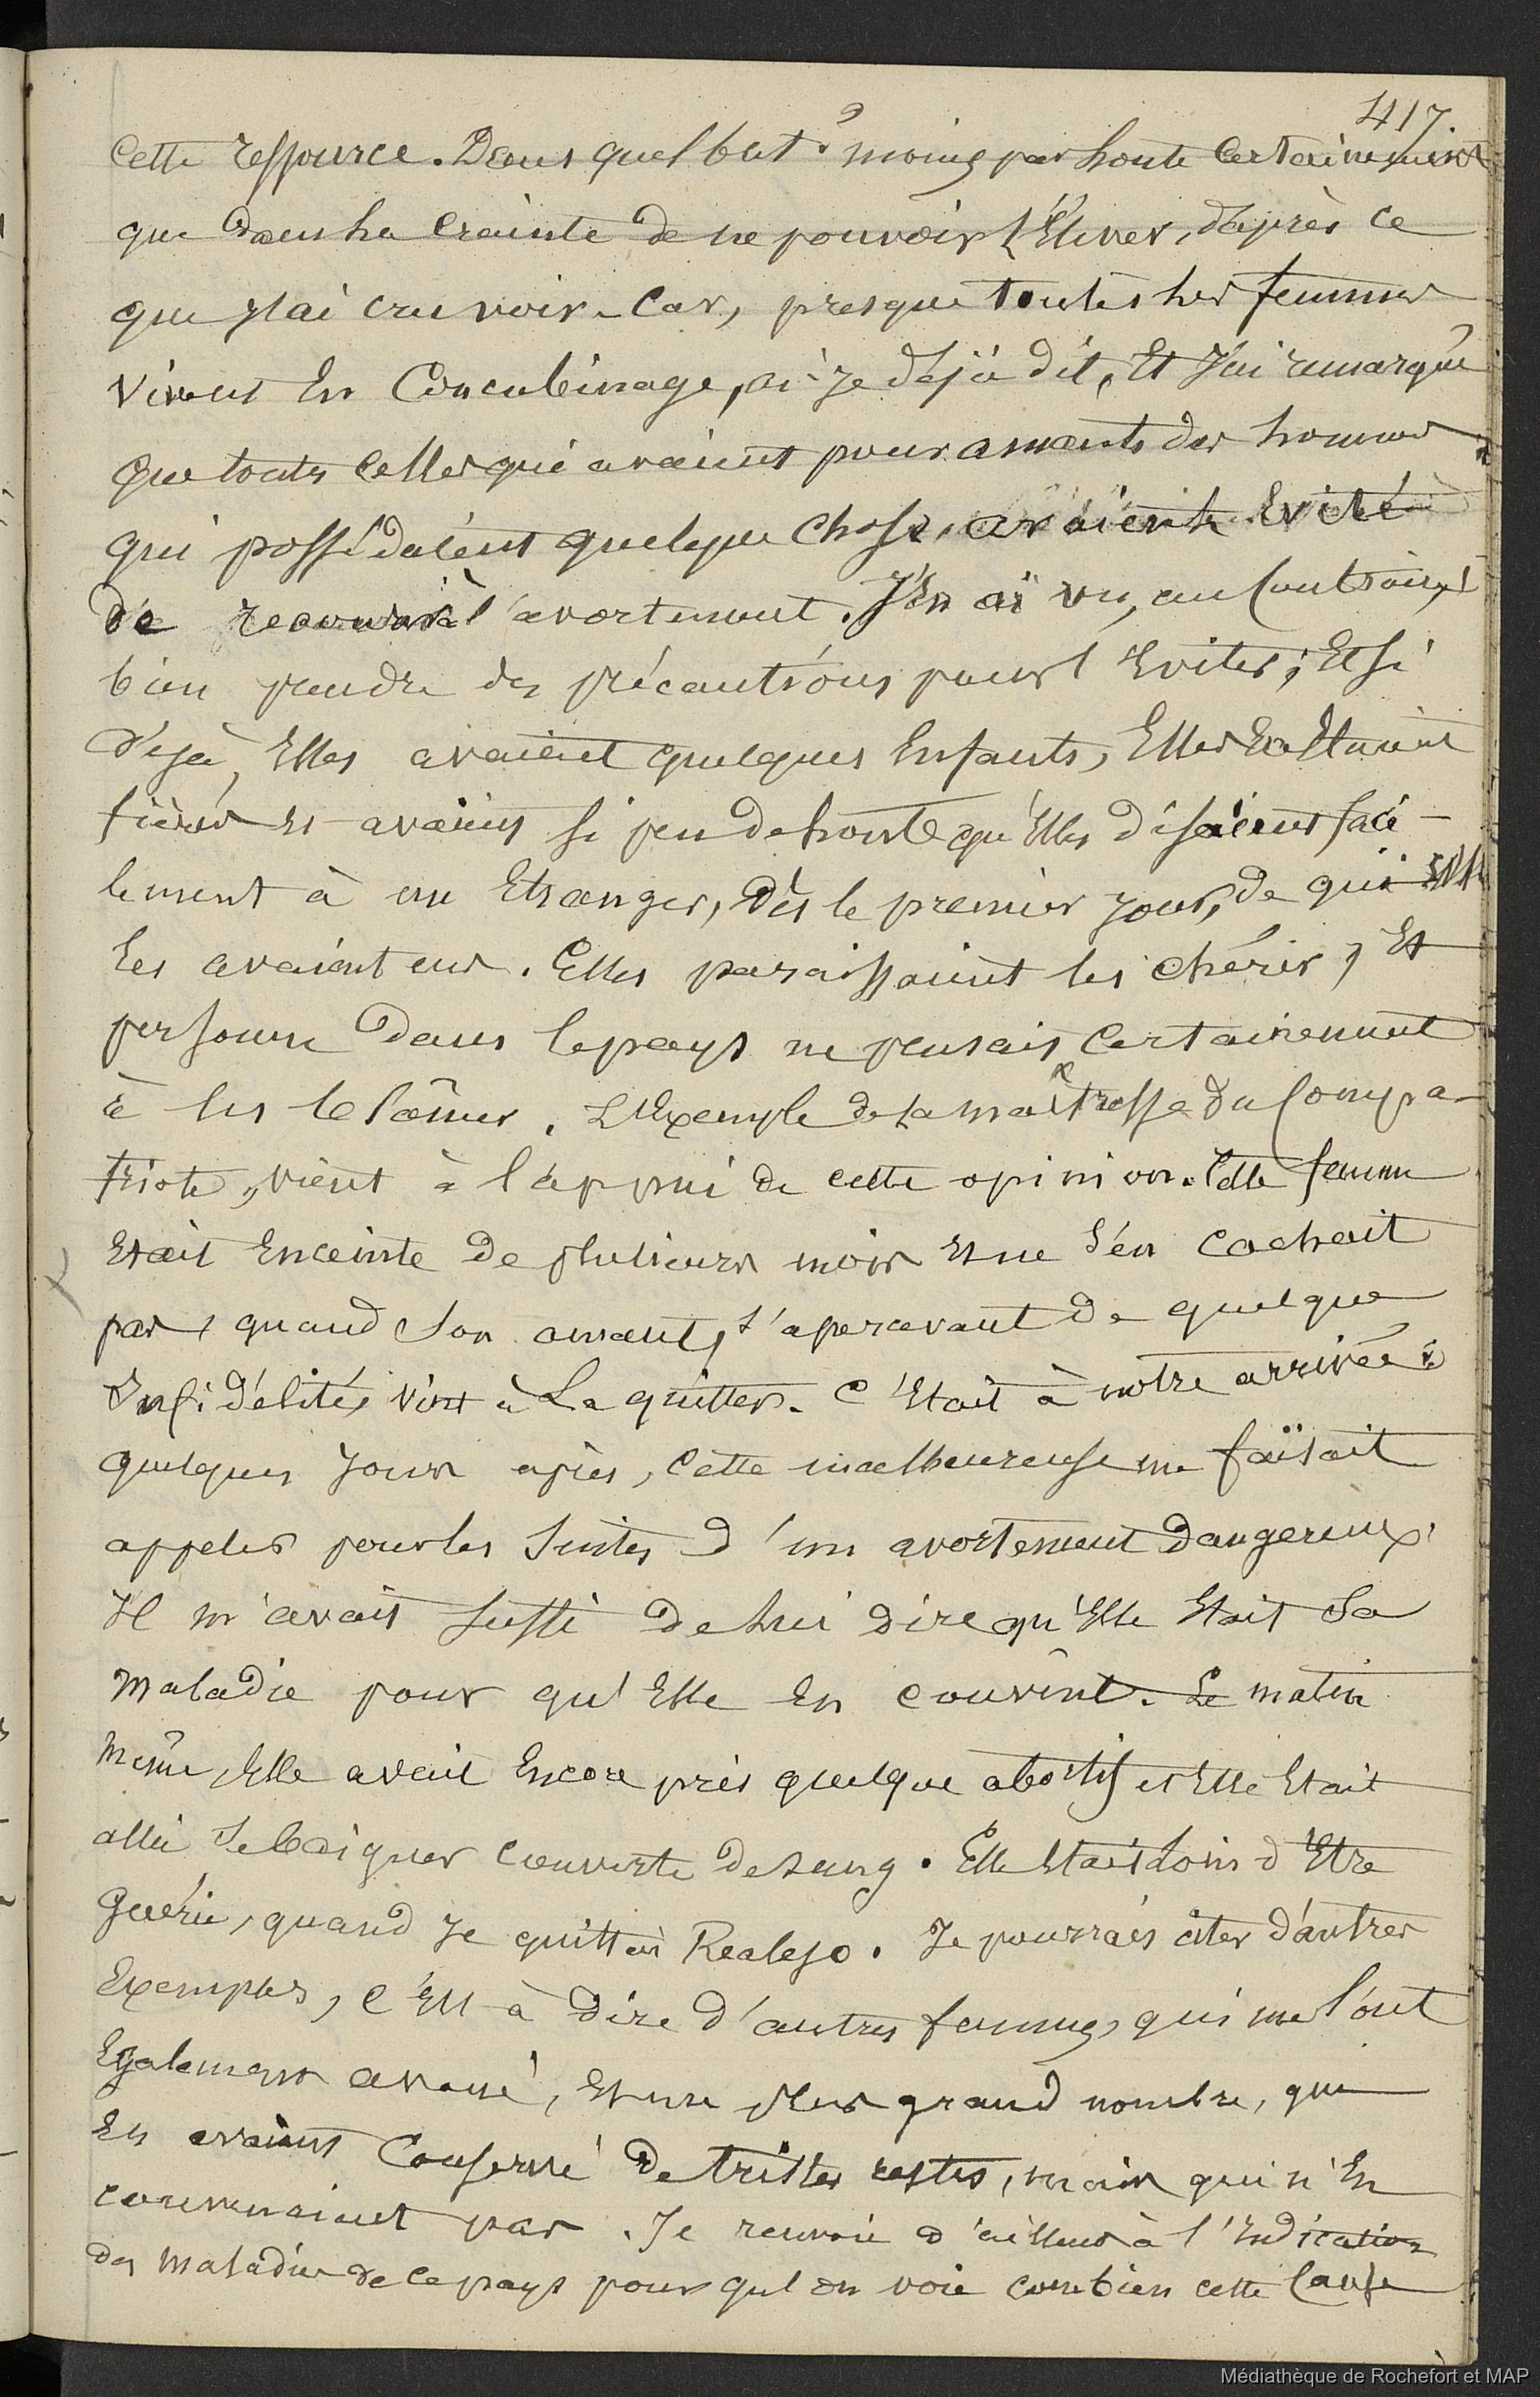 417.
Cette ressource. Dans quel but ? moins par honte certainement
que dans la crainte de ne pouvoir l'Elever, d'après ce
que j'ai cru voir. Car, presque toutes les femmes
vivent En Concubinage, ai-je déjà dit, Et J'ai remarqué
que toutes celles qui avaient pour amants des hommes
qui possédaient quelque chose, avaient Evité
de recourir à l'avortement. J'En ai vu, au Contraire,
bien prendre des précautions pour l'Eviter; Et si
déjà, Elles avaient quelques Enfants, Elles En Etaient
fières Et avaient si peu de honte qu'Elles disaient faci-
lement à un Etranger, dès le premier jour, de qui Elles
les avaient eus. Elles paraissaient les chérir, Et
personne dans le pays ne pensait certainement
à les blâmer. L'Exemple de la maîtresse du Compa-
triote, vient à l'appui de cette opinion. Cette femme
Etait Enceinte de plusieurs mois Et ne s'en cachait
pas, quand son amant, s'apercevant de quelque
Infidélité, vint à La quitter. C'Etait à notre arrivée;
quelques jours après, cette malheureuse me faisait
appeler pour les suites d'un avortement dangereux.
Il m'avait suffi de lui dire qu'Elle Etait Sa
maladie pour qu'Elle En convînt. Le matin
même, Elle avait Encore pris quelque abortif et Elle Etait
allée se baigner couverte de sang. Elle Etait Loin d'Etre
guérie, quand Je quittai Realejo. Je pourrais citer d'autres
Exemples, C'Est à dire d'autres femmes, qui me l'ont
Egalement avoué, Et un plus grand nombre, qui
En avaient Conservé de tristes restes, mais qui n'En
convenaient pas. Je renvoie d'ailleurs à l'Indication
des maladies de ce pays pour qu'on voie combien cette Cause
Médiathèque de Rochefort et MAP